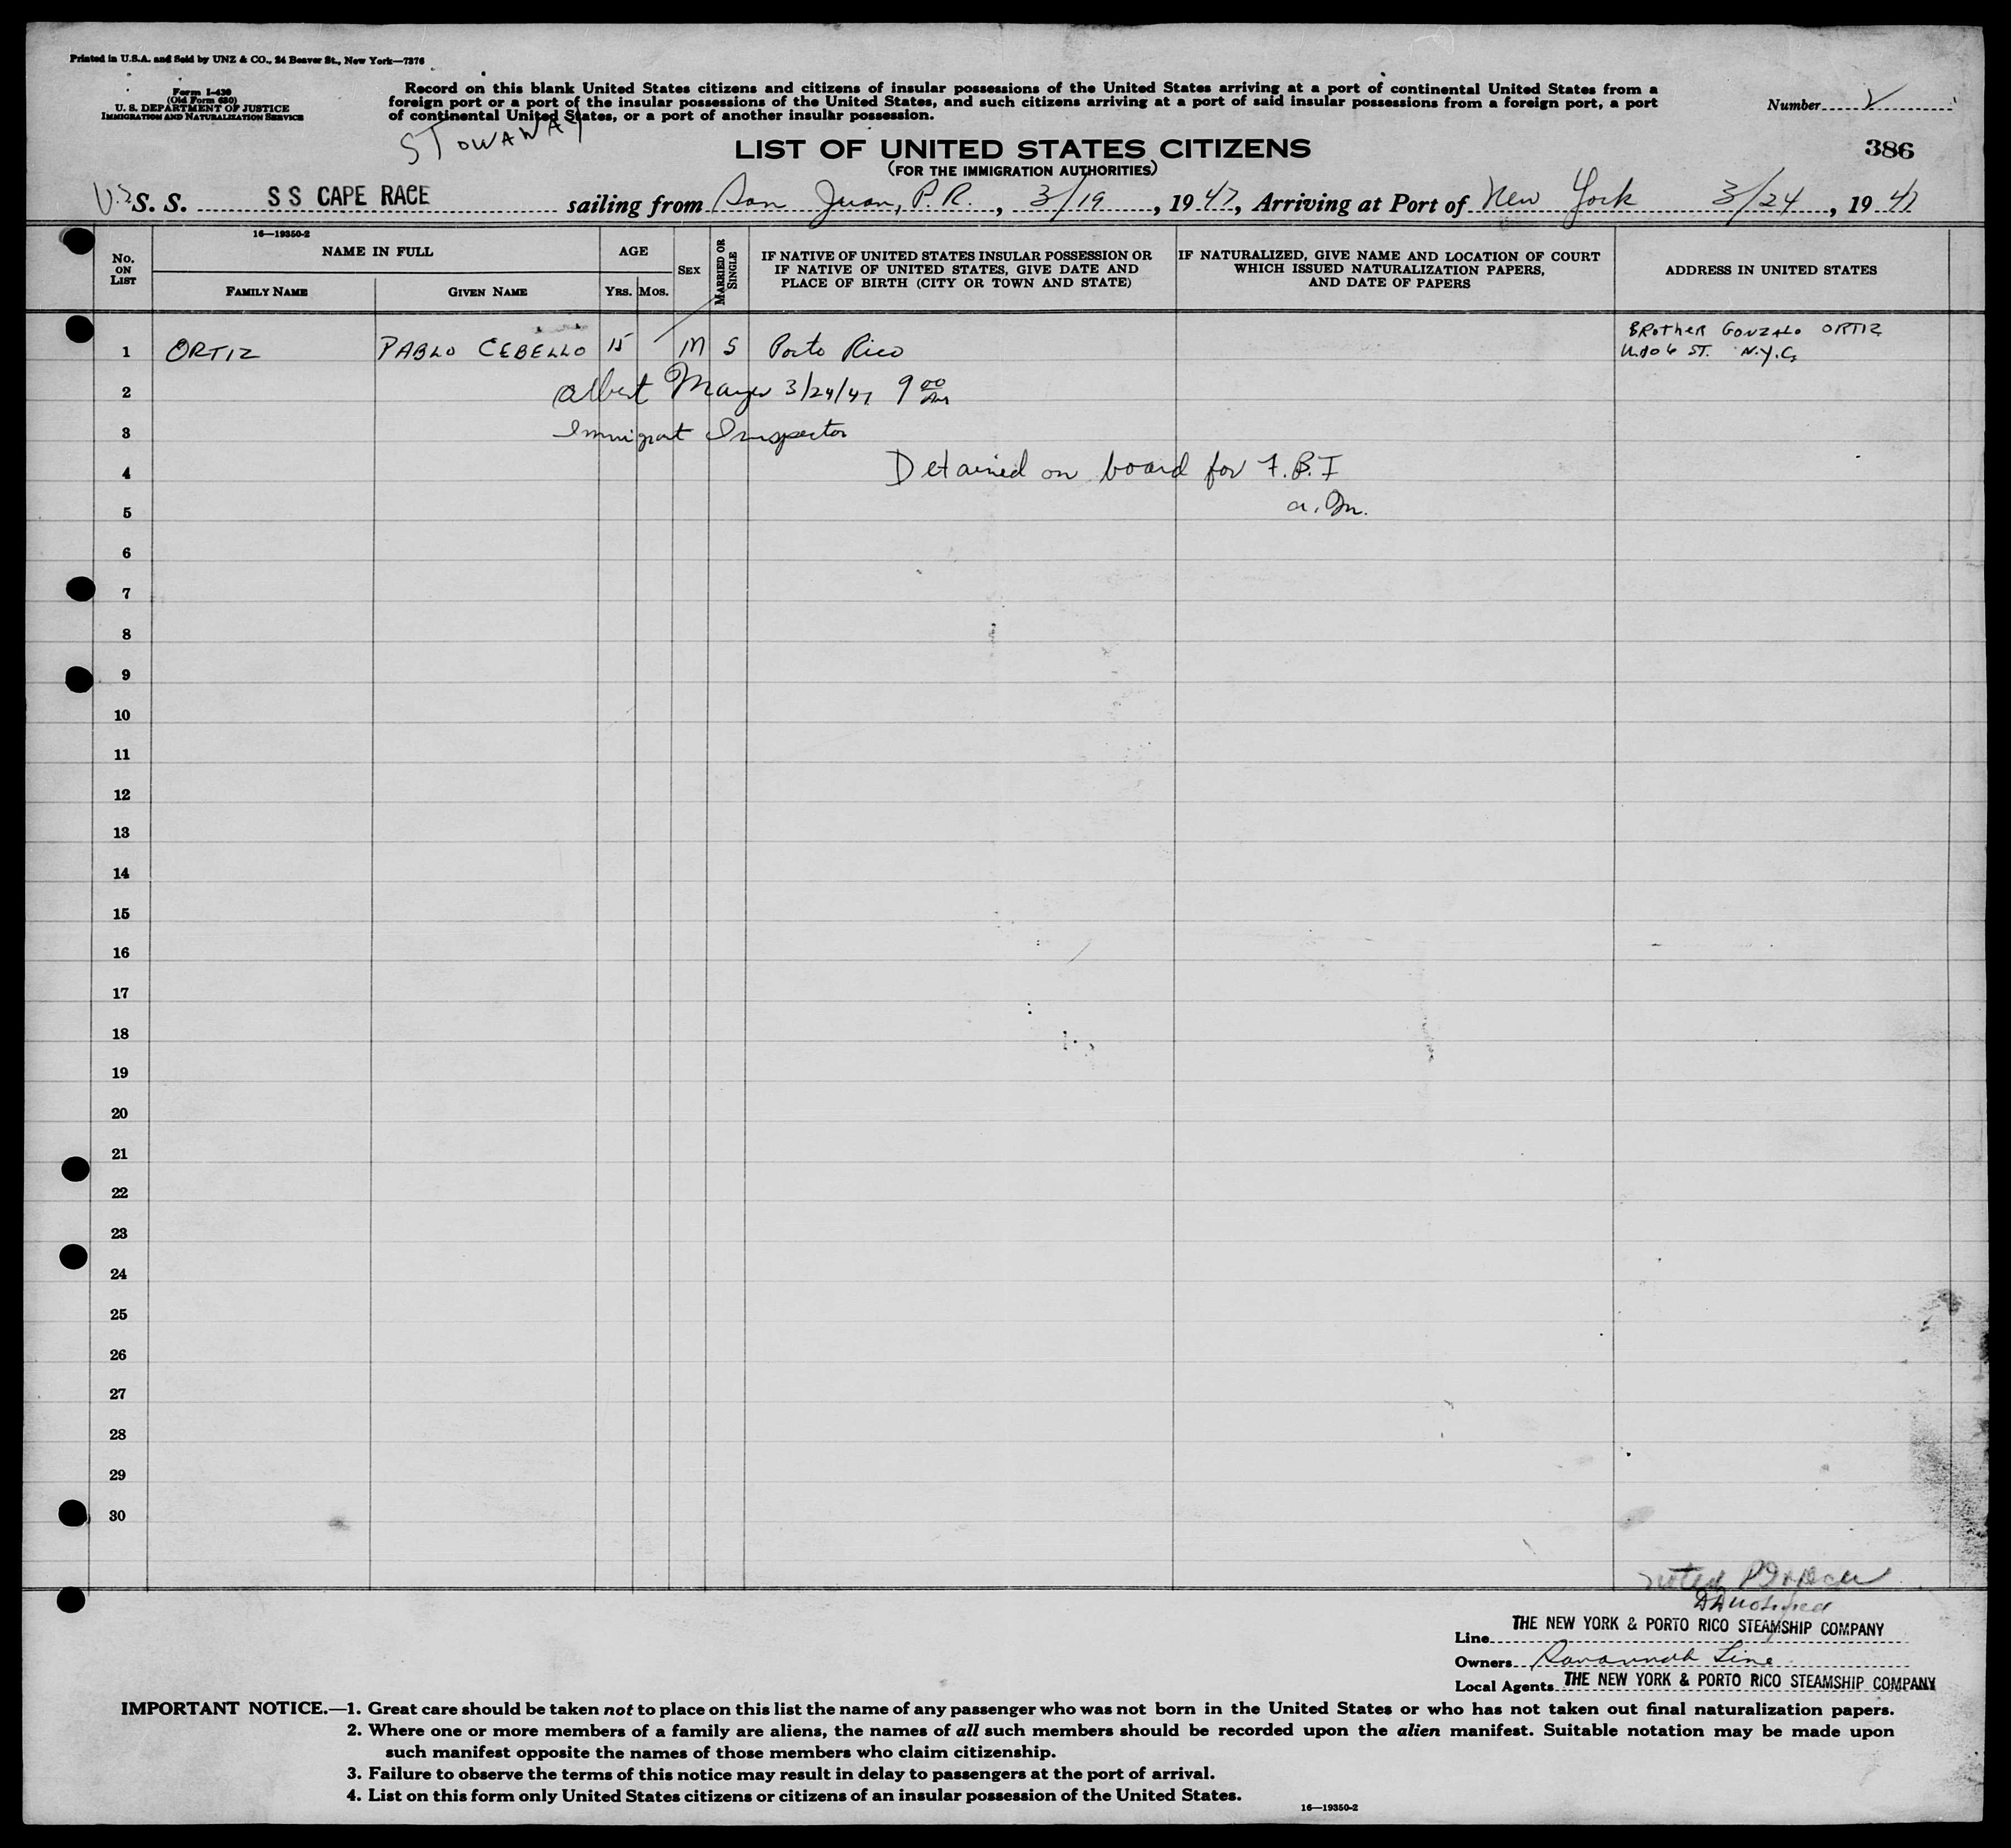 Printed in U.S.A. and Sold by UNZ & CO., 24 Beaver St., New York—7376
Form I-430
(Old Form 630)
U. S. DEPARTMENT OF JUSTICE
IMMIGRATION AND NATURALIZATION SERVICE
Record on this blank United States citizens and citizens of insular possessions of the United States arriving at a port of continental United States from a
foreign port or a port of the insular possessions of the United States, and such citizens arriving at a port of said insular possessions from a foreign port, a port
of continental United States, or a port of another insular possession.
Number 2
STOWAWAY
LIST OF UNITED STATES CITIZENS
386
(FOR THE IMMIGRATION AUTHORITIES)
U.S. S. S. S S CAPE RACE sailing from San Juan, P.R., 3/19, 1947, Arriving at Port of New York 3/24, 1947
16—19350-2
No. ON LIST
NAME IN FULL
FAMILY NAME
GIVEN NAME
AGE
YRS. MOS.
SEX
MARRIED OR SINGLE
IF NATIVE OF UNITED STATES INSULAR POSSESSION OR
IF NATIVE OF UNITED STATES, GIVE DATE AND
PLACE OF BIRTH (CITY OR TOWN AND STATE)
IF NATURALIZED, GIVE NAME AND LOCATION OF COURT
WHICH ISSUED NATURALIZATION PAPERS,
AND DATE OF PAPERS
ADDRESS IN UNITED STATES
1 ORTIZ PABLO CEBELLO 15 M S Porto Rico BROTHER GONZALO ORTIZ
106 ST. N.Y.C.
2 Albert Mayer 3/24/47 9 00 AM
3 Immigrant Inspector
4 Detained on board for F.B.I
5 a.m.
6
7
8
9
10
11
12
13
14
15
16
17
18
19
20
21
22
23
24
25
26
27
28
29
30
noted
Line THE NEW YORK & PORTO RICO STEAMSHIP COMPANY
Owners Savannah Line
Local Agents THE NEW YORK & PORTO RICO STEAMSHIP COMPANY
IMPORTANT NOTICE.—1. Great care should be taken not to place on this list the name of any passenger who was not born in the United States or who has not taken out final naturalization papers.
2. Where one or more members of a family are aliens, the names of all such members should be recorded upon the alien manifest. Suitable notation may be made upon
such manifest opposite the names of those members who claim citizenship.
3. Failure to observe the terms of this notice may result in delay to passengers at the port of arrival.
4. List on this form only United States citizens or citizens of an insular possession of the United States.
16—19350-2